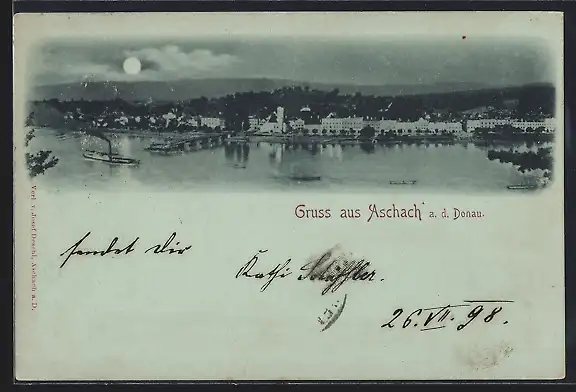 Gruss aus Aschach a. d. Donau.
sendet Dir
Kathi Schäffler.
26. VII. 98.
Verl. v. Josef Deschl, Aschach a. D.